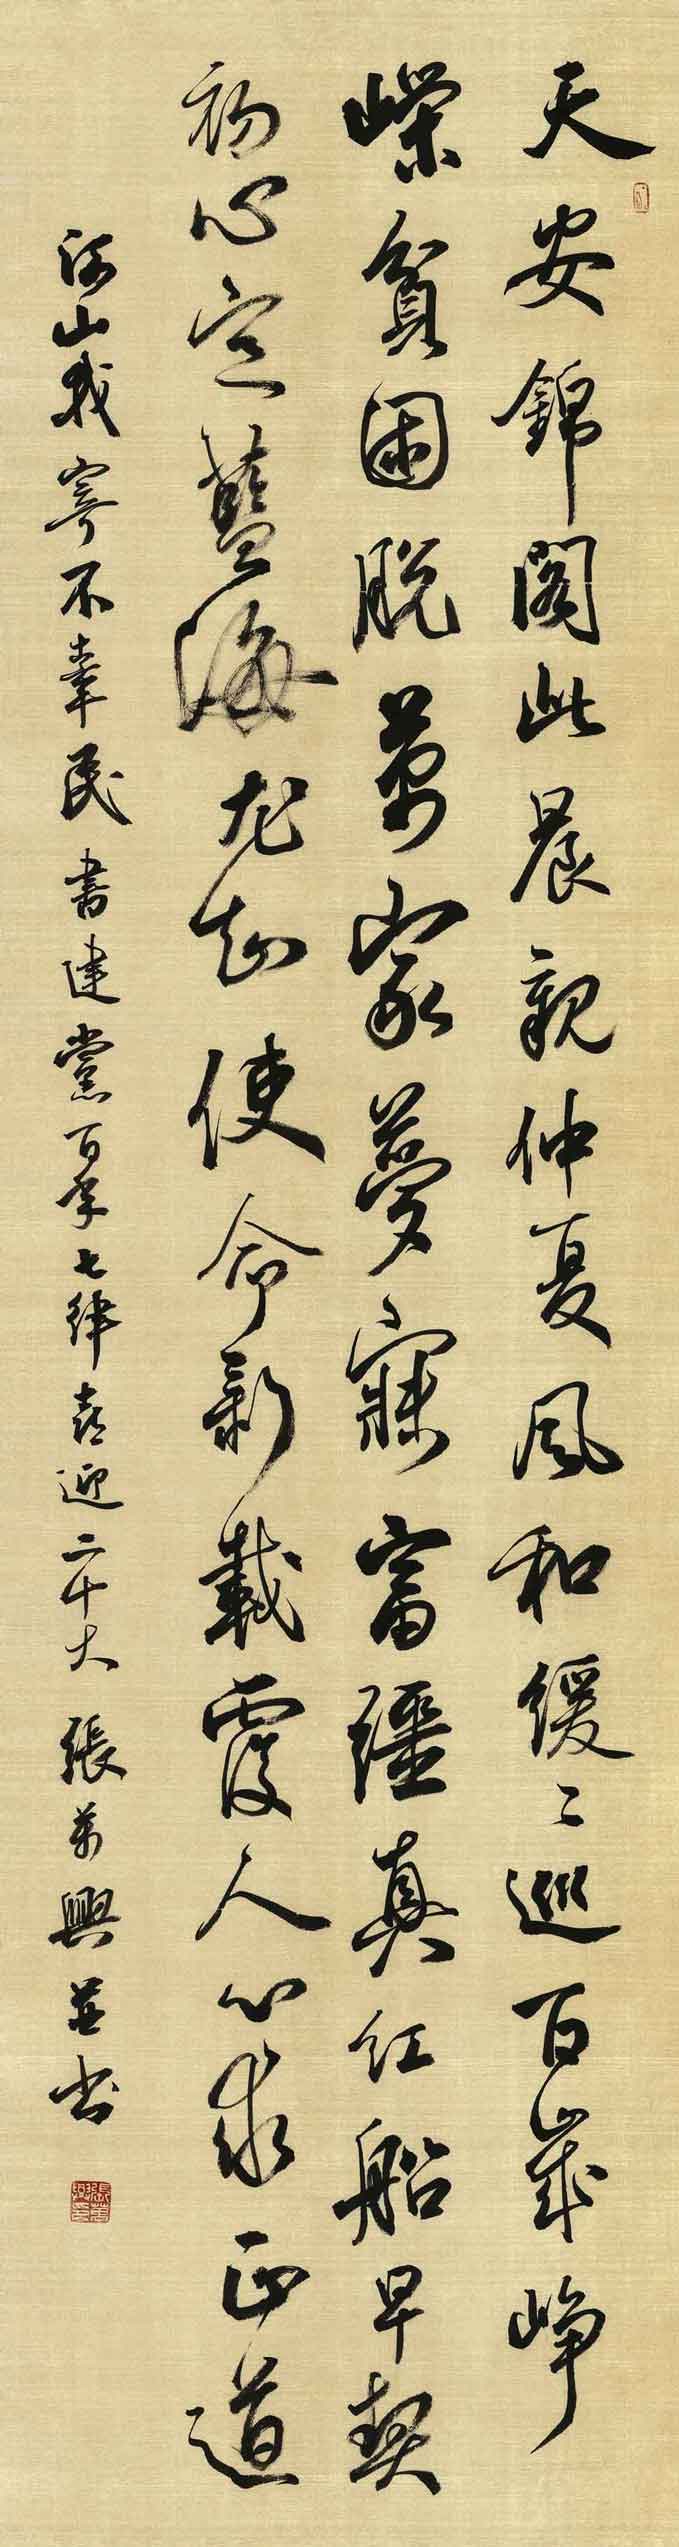 天安錦閣此晨親仲夏風和緩〻巡百歲崢
嶸貧困脫萬家夢寐富疆真紅船早契
初心定藍海尤知使命新載覆人心求正道
河山我寄不辜民 書建黨百年七律喜迎二十大 張萬興並书